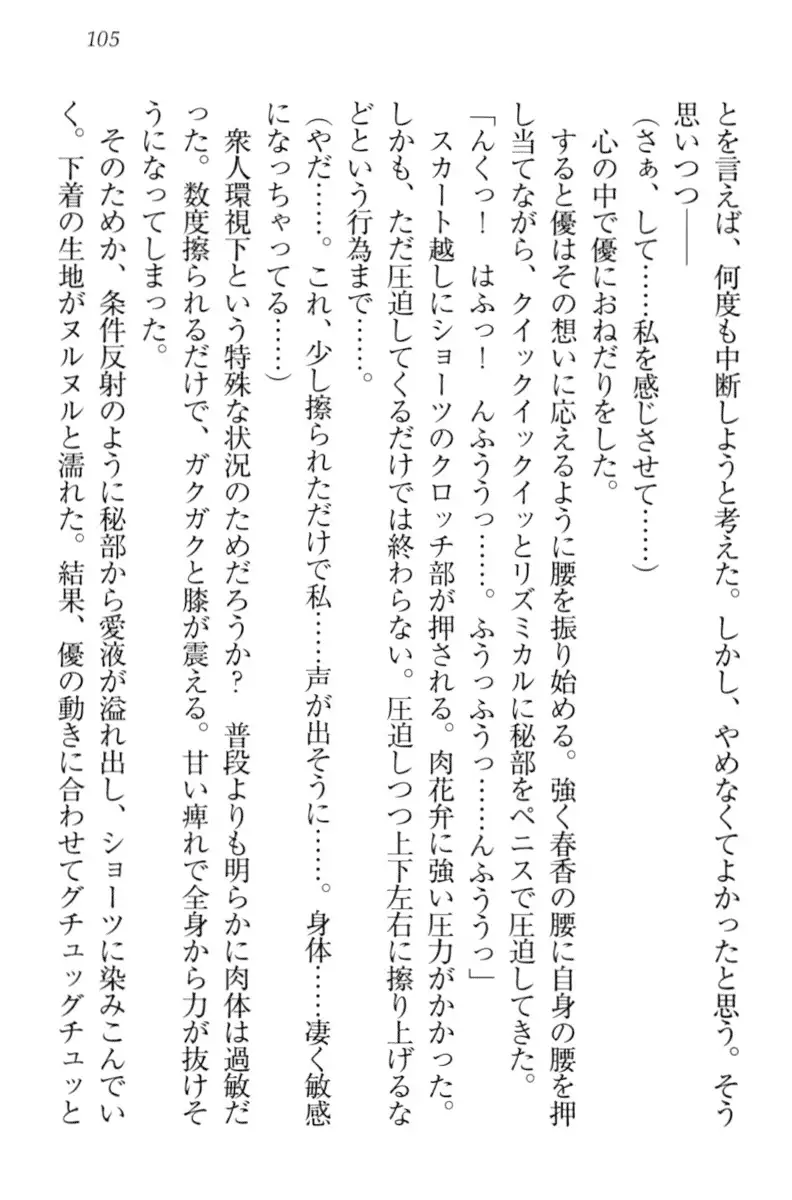 105
とを言えば、何度も中断しようと考えた。しかし、やめなくてよかったと思う。そう
思いつつ――
（さぁ、して……私を感じさせて……）
心の中で優におねだりをした。
すると優はその想いに応えるように腰を振り始める。強く春香の腰に自身の腰を押
し当てながら、クイックイックイッとリズミカルに秘部をペニスで圧迫してきた。
「んくっ！　はふっ！　んふううっ……。ふうっふうっ……んふううっ」
スカート越しにショーツのクロッチ部が押される。肉花弁に強い圧力がかかった。
しかも、ただ圧迫してくるだけでは終わらない。圧迫しつつ上下左右に擦り上げるな
どという行為まで……。
（やだ……。これ、少し擦られただけで私……声が出そうに……。身体……凄く敏感
になっちゃってる……）
衆人環視下という特殊な状況のためだろうか？　普段よりも明らかに肉体は過敏だ
った。数度擦られるだけで、ガクガクと膝が震える。甘い痺れで全身から力が抜けそ
うになってしまった。
そのためか、条件反射のように秘部から愛液が溢れ出し、ショーツに染みこんでい
く。下着の生地がヌルヌルと濡れた。結果、優の動きに合わせてグチュッグチュッと